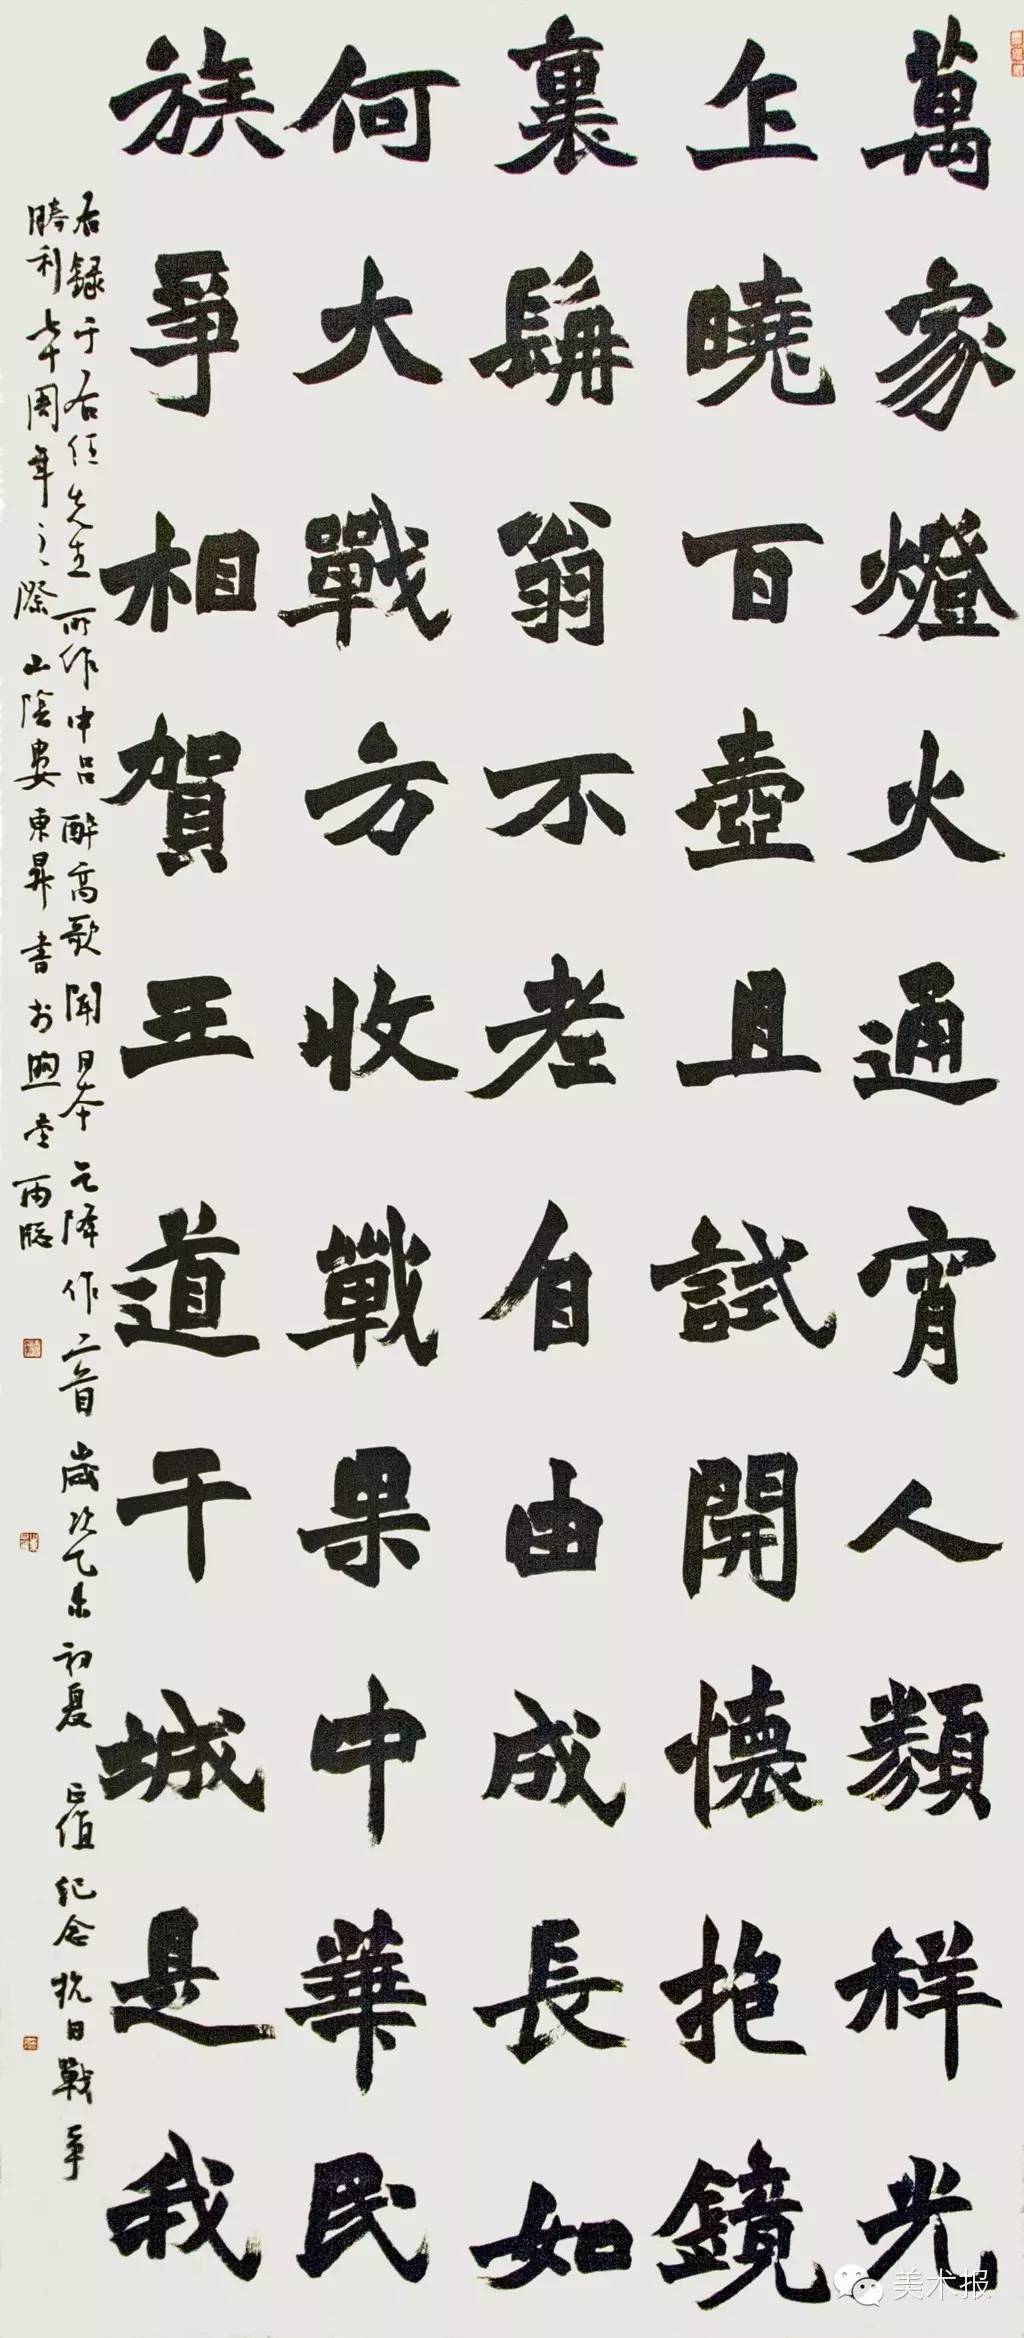 萬家燈火通宵人類祥光
上曉百壺且試開懷抱鏡
裏髯翁不老自由成長如
何大戰方收戰果中華民
族爭相賀王道干城是我
右録于右任先生所作中吕醉高歌聞日本乞降作二首歲次乙未初夏正值紀念抗日戰爭
勝利七十周年之際山陰婁東昇書於煦堂雨牕
美术报